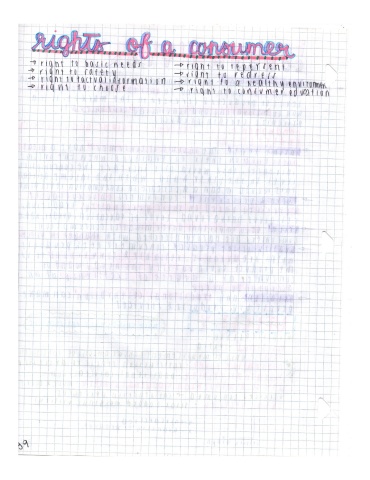 rights of a consumer
→ right to basic needs
→ right to safety
→ right to factual information
→ right to choose
→ right to represent
→ right to redress
→ right to a healthy environmen
→ right to consumer education
39